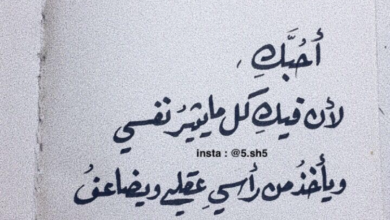 أُحبَّكِ،
لأن فيكِ كل مايثيرُ نفسي
insta : @5.sh5
ويأخذُ من رأسي عقلي ويضاعفُ